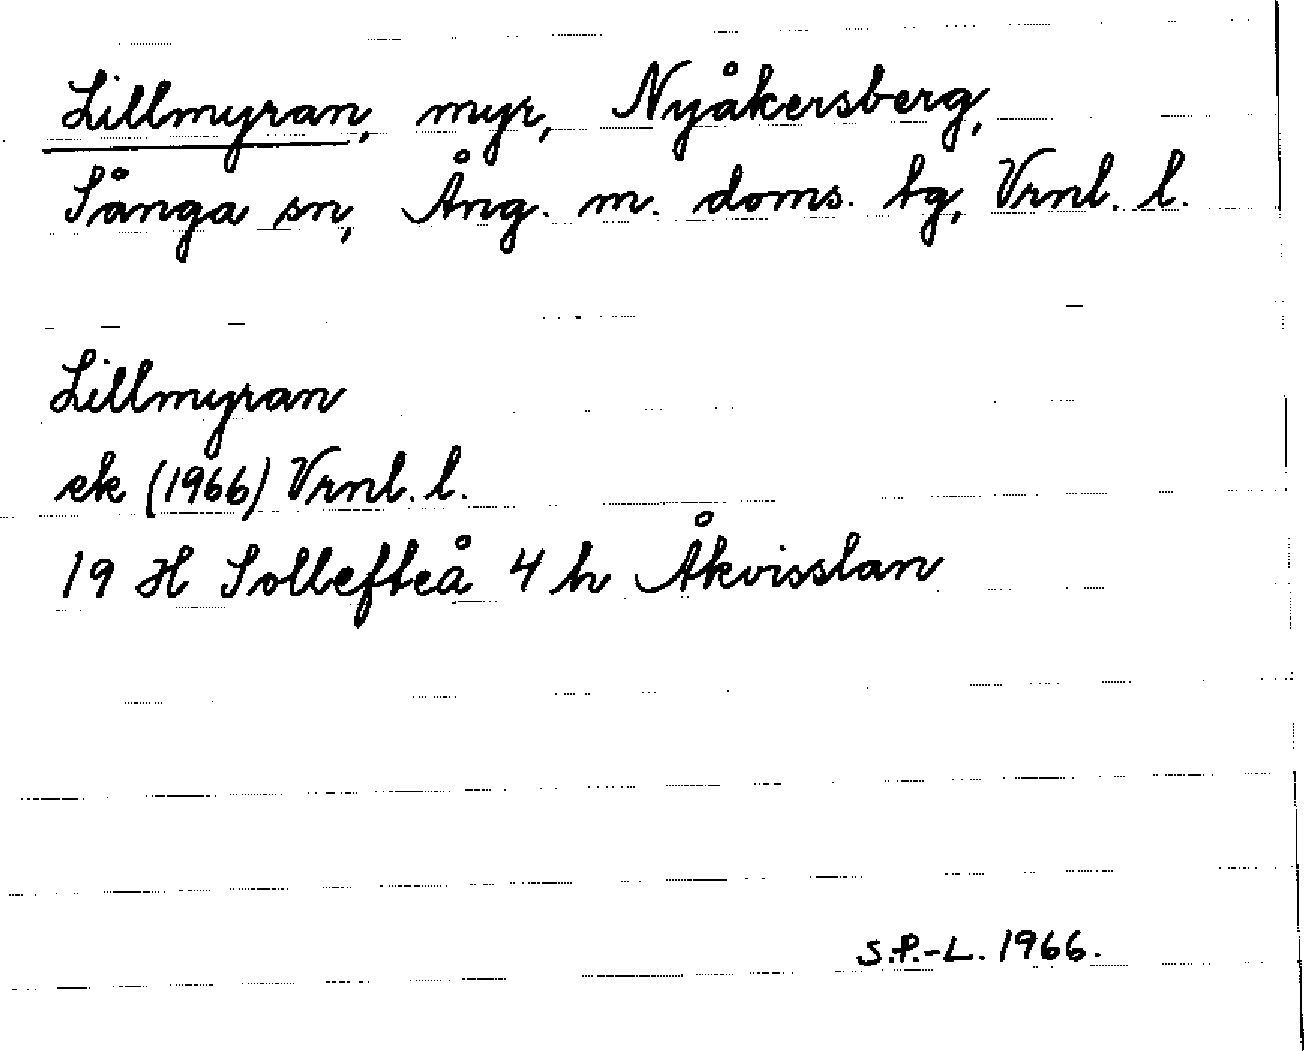 Lillmyran, myr, Nyåkersberg,
Sånga sn, Ång. m. doms. tg, Vrnl. l.
Lillmyran
ek (1966) Vrnl. l.
19 H Sollefteå 4 h Åkvisslan
S.P.-L. 1966.